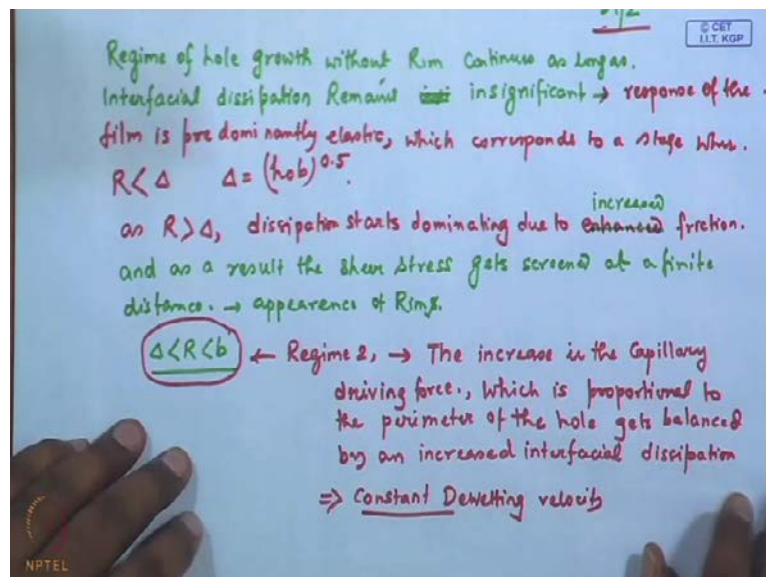 © CET
I.I.T. KGP
Regime of hole growth without Rim Continues as long as.
Interfacial dissipation Remains insignificant → response of the
film is predominantly elastic, which corresponds to a stage when.
R < Δ Δ = (h₀b)^0.5.
as R > Δ, dissipation starts dominating due to increased friction.
and as a result the shear stress gets screened at a finite
distance. → appearence of Rims.
Δ<R<b ← Regime 2, → The increase in the Capillary
driving force., which is proportional to
the perimeter of the hole gets balanced
by an increased interfacial dissipation
⇒ Constant Dewetting velocity
NPTEL